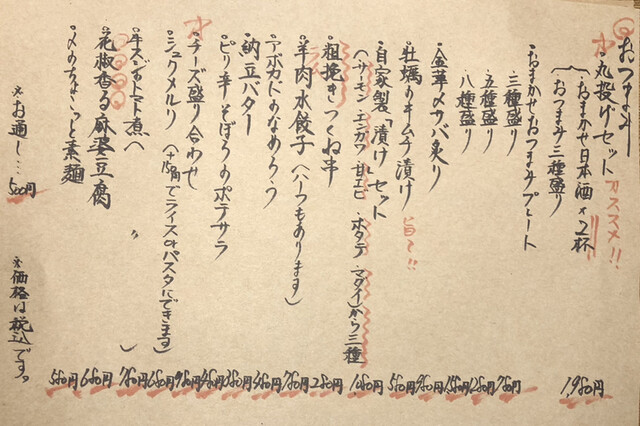 おつまみ
・丸投げセット オススメ!!
おまかせ日本酒×2杯
おつまみ三種盛り
・おまかせおつまみプレート
三種盛り 780円
五種盛り
八種盛り
・金華〆サバ炙り 980円
・牡蠣のキムチ漬け 旨て!! 580円
・自家製「漬け」セット
(サーモン・エンガワ・甘エビ・ホタテ・マダイ)から三種
・粗挽きつくね串 280円
・羊肉水餃子(ハーフもあります) 780円
・アボカドのなめろう
・納豆バター
・ピリ辛そぼろのポテサラ
・チーズ盛り合わせ
・シュクメルリ(+150円でライスorパスタにできます)
・牛スジのトマト煮へ 〃
・花椒香る麻婆豆腐 680円
・〆のちょこっと素麺 580円
1,980円
※お通し… 500円
※価格は税込です。